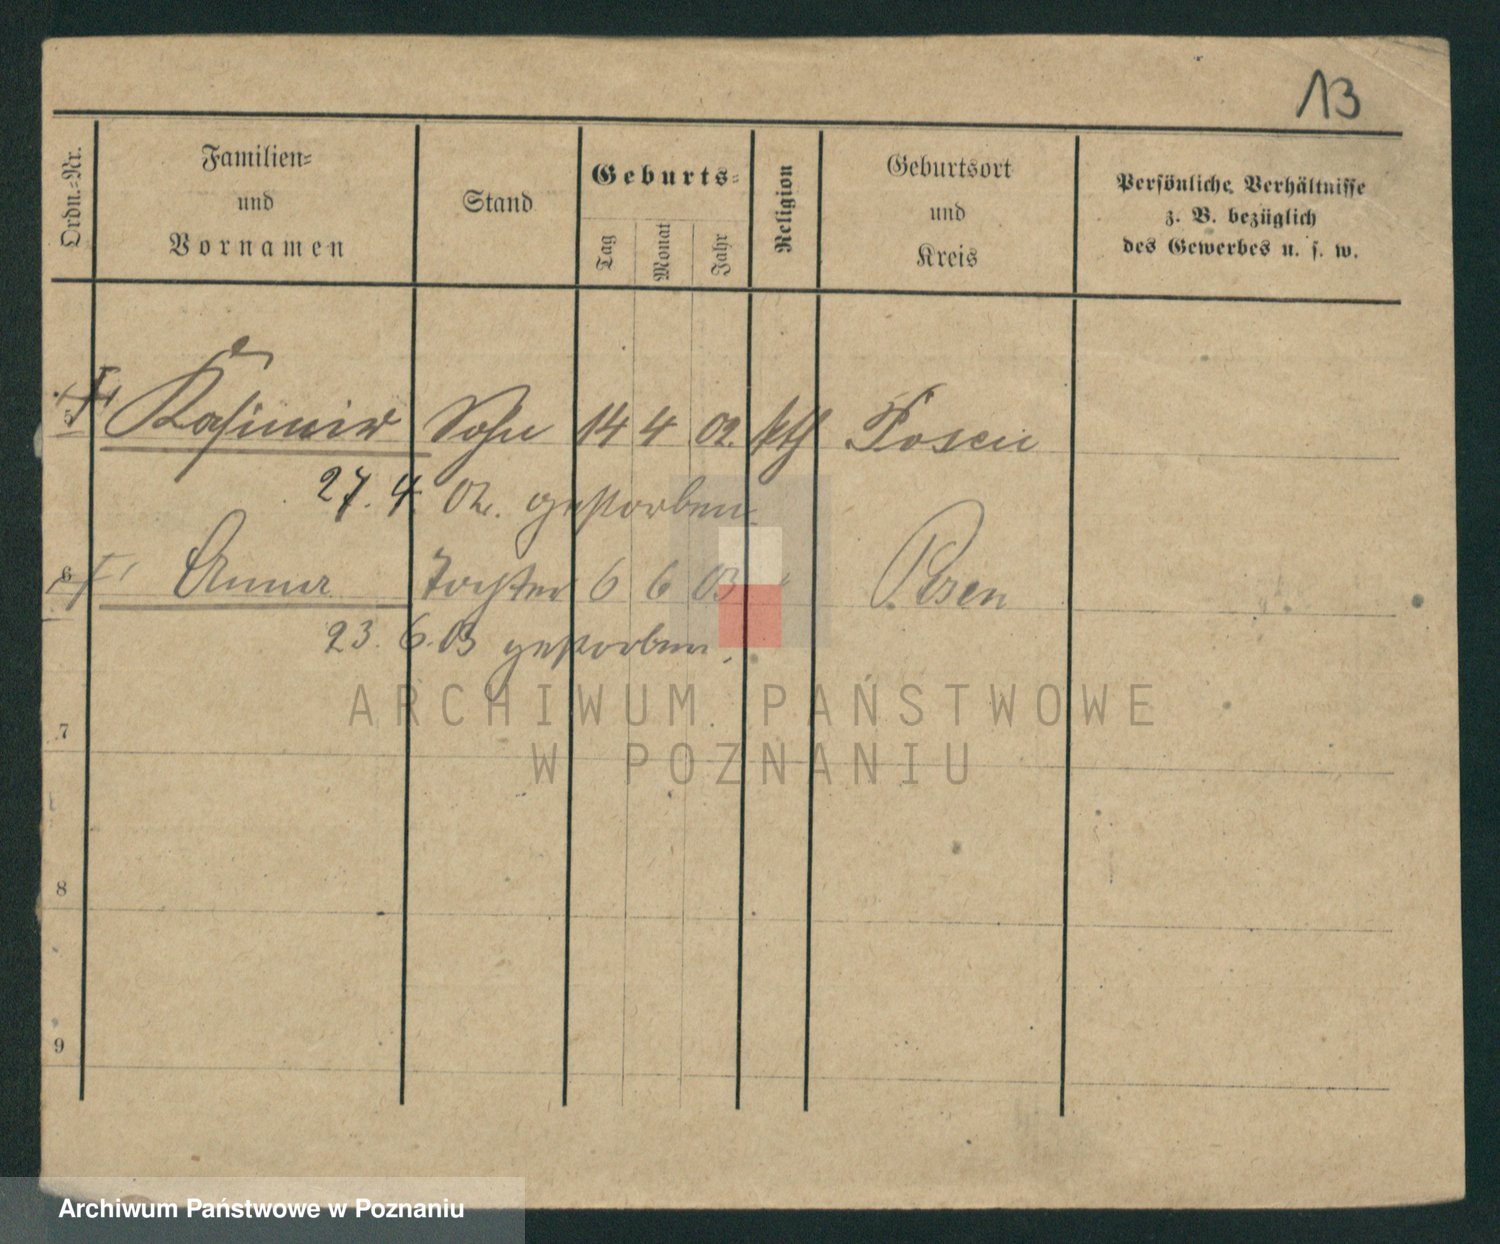 13
Ordn.-Nr.
Familien-
und
Vornamen
Stand
Geburts-
Tag
Monat
Jahr
Religion
Geburtsort
und
Kreis
Persönliche Verhältnisse
z. B. bezüglich
des Gewerbes u. s. w.
5 Kasimir Sohn 14 4 02. kth Posen
27. 4. 02. gestorben.
6 Anna Tochter 6 6 03 Posen
23. 6. 03 gestorben.
ARCHIWUM PAŃSTWOWE
W POZNANIU
7
8
9
Archiwum Państwowe w Poznaniu